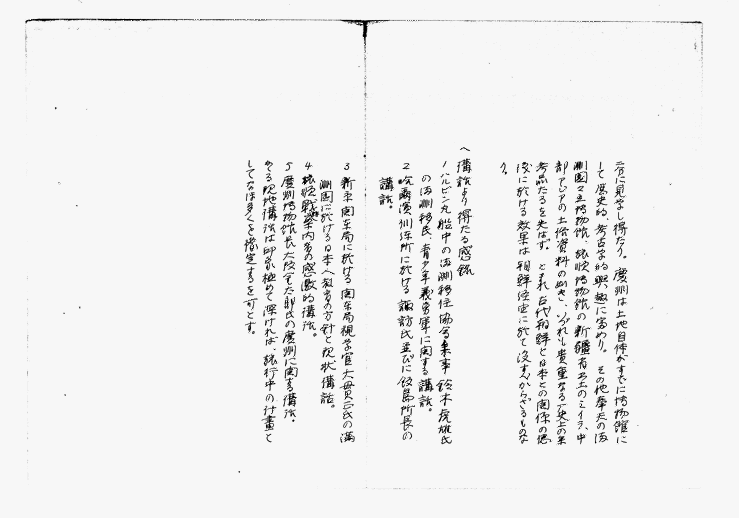 充分に見なし得たり。慶州は土地自体がすでに博物館に
して歴史的、考古学的興趣に富めり。その他奉天の満
洲国々立博物館、旅順博物館の新疆省出土のミイラ、中
部アジアの土俗資料の如き、いづれも貴重なる歴史上の参
考品たるを失はず。とまれ古代朝鮮と日本との関係の認
識に於ける効果は朝鮮経由に於て没すべからざるものな
り。
ヘ 講話より得たる感銘
1 ハルビン丸船中の満洲移住協会業事鈴木虎雄氏
の満洲移民、青少年義勇軍に関する講話。
2 哈爾濱訓練所に於ける諏訪氏並びに飯島所長の
講話。
3 新京関東局に於ける関東局視学官大貫正氏の満
洲国に於ける日本人教育の方針と現状講話。
4 旅順戦蹟案内者の感激的講話。
5 慶州博物館長大坂金太郎氏の慶州に関する講話。
かゝる現地講話は印象極めて深ければ、旅行中の計画と
してなほ多くを撰定するを可とす。